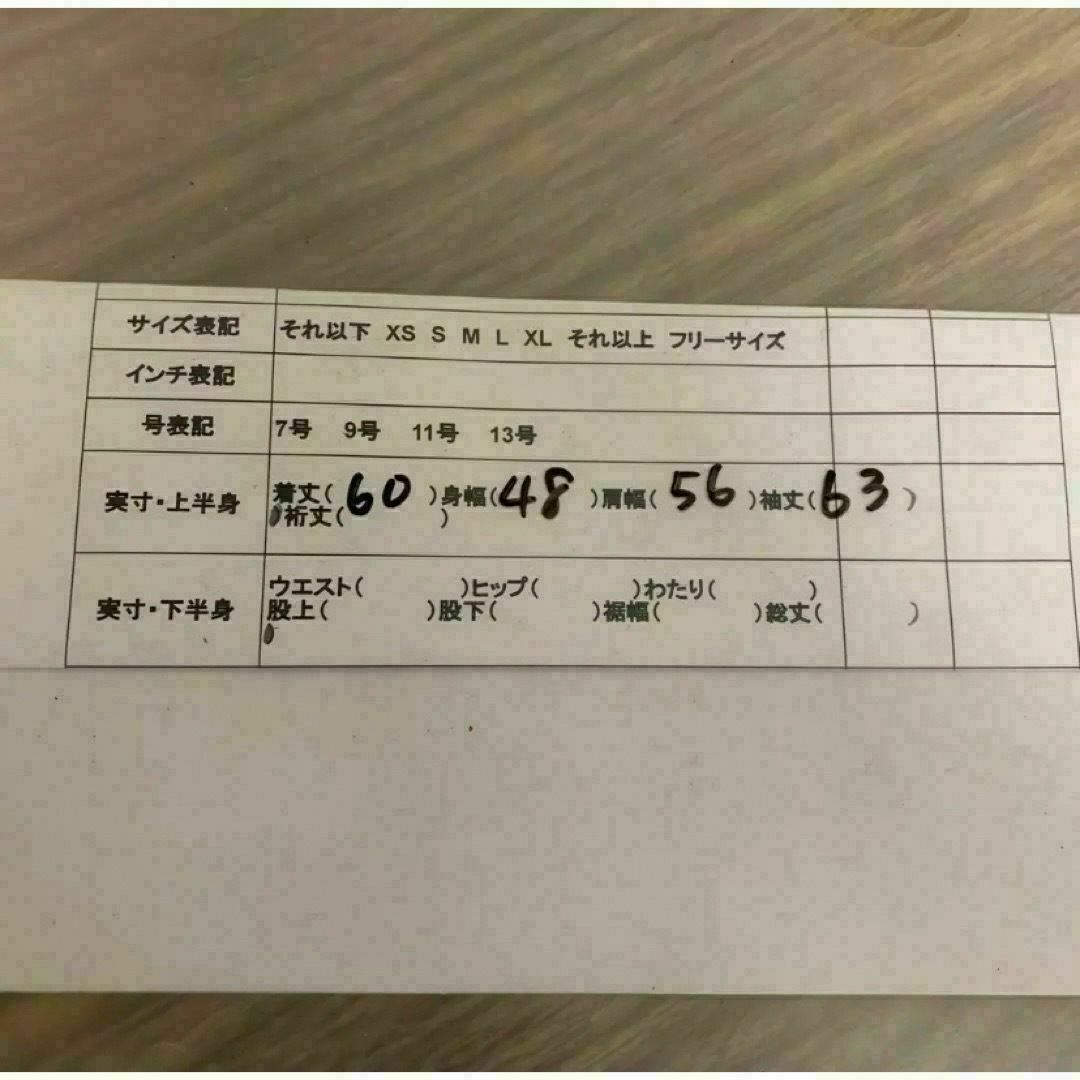 サイズ表記 それ以下 XS S M L XL それ以上 フリーサイズ
インチ表記
号表記 7号 9号 11号 13号
実寸・上半身 着丈(60)身幅(48)肩幅(56)袖丈(63)
裄丈( )
実寸・下半身 ウエスト( )ヒップ( )わたり( )
股上( )股下( )裾幅( )総丈( )